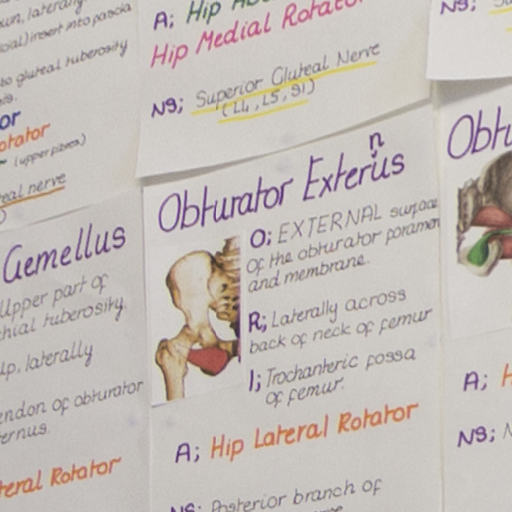 un, laterally
cial) insert into fascia
to gluteal tuberosity
or
otator
(upper fibres)
eal nerve
A; Hip
Hip Medial Rotato
NS; Superior Gluteal Nerve
(L4, L5, S1)
NS;
Gemellus
Upper part of
chial tuberosity.
up, laterally
endon of obturator
ernus.
teral Rotator
Obturator Exterus
n
O; EXTERNAL surface
of the obturator foramen
and membrane.
R; Laterally across
back of neck of femur
I; Trochanteric fossa
of femur.
A; Hip Lateral Rotator
NS; Posterior branch of
Obtu
A; H
NS; N